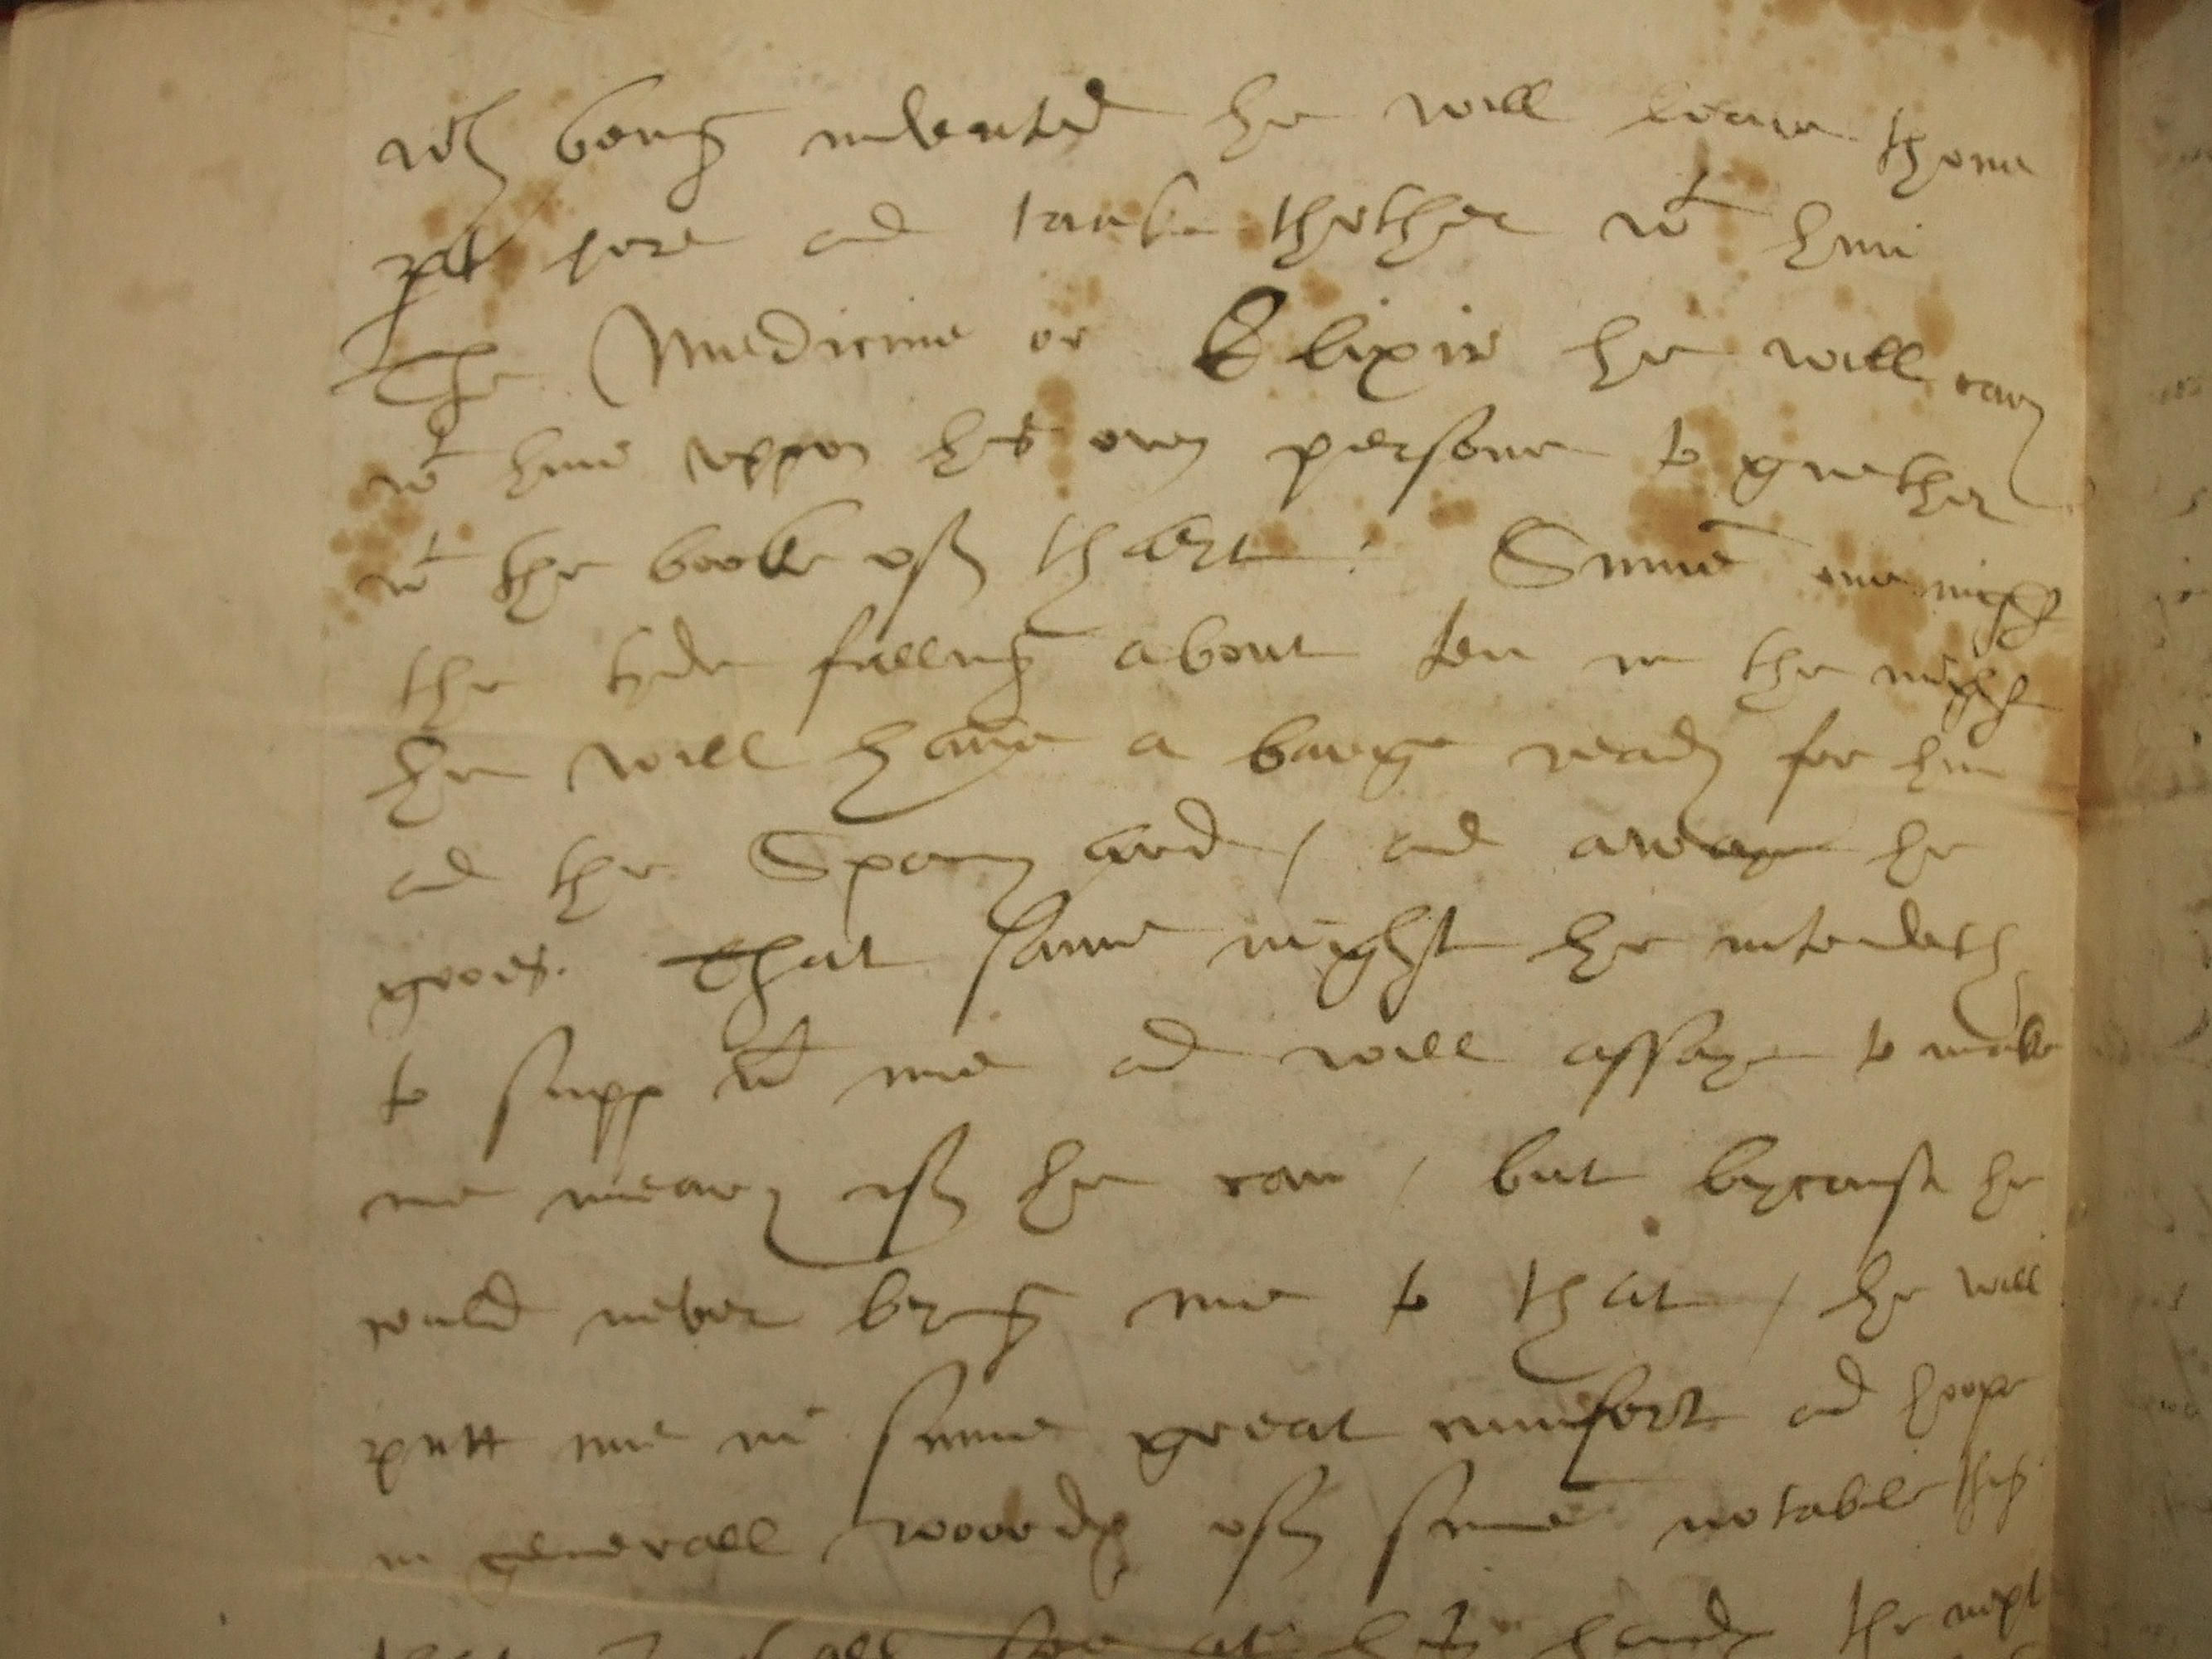 wch being indented he will leave thone
pt here and taake thother wt him
The Medicine or Elixir he will cary
wt hime uppon his own persone to gether
wt the booke off thart : Summe one night
the tyde falling about ten in the night
he will have a barge ready for him
and the Spanyard / and awaye he
gooes. That same night he intendeth
to supp wt me and will assaye to make
me meary iff he can / but bycause he
could never bring me to that / he will
putt me in summe great cumfort and hoope
in generall woords off summe notable thig
that I shall see at his hands the next